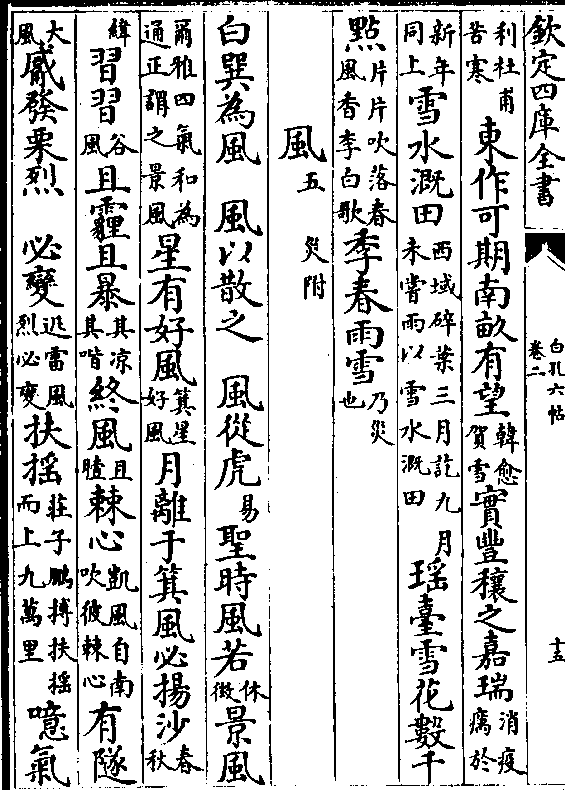 欽定四庫全書
白孔六帖
卷二
十五
利杜甫苦寒東作可期南畝有望韓愈賀雪實豐穰之嘉瑞消疫癘於
新年同上雪水溉田西域碎葉三月訖九月未嘗雨以雪水溉田瑶臺雪花數千
點片片吹落春風香李白歌季春雨雪乃災也
風五災附
白巽為風 風以散之 風從虎易聖時風若休徵景風
爾雅四氣和為通正謂之景風星有好風箕星好風月離于箕風必揚沙春秋
緯習習谷風且霾且暴其凉其喈終風且曀棘心凱風自南吹彼棘心有隧
大風觱發栗烈 必變迅雷風烈必變扶揺莊子鵬搏扶揺而上九萬里噫氣